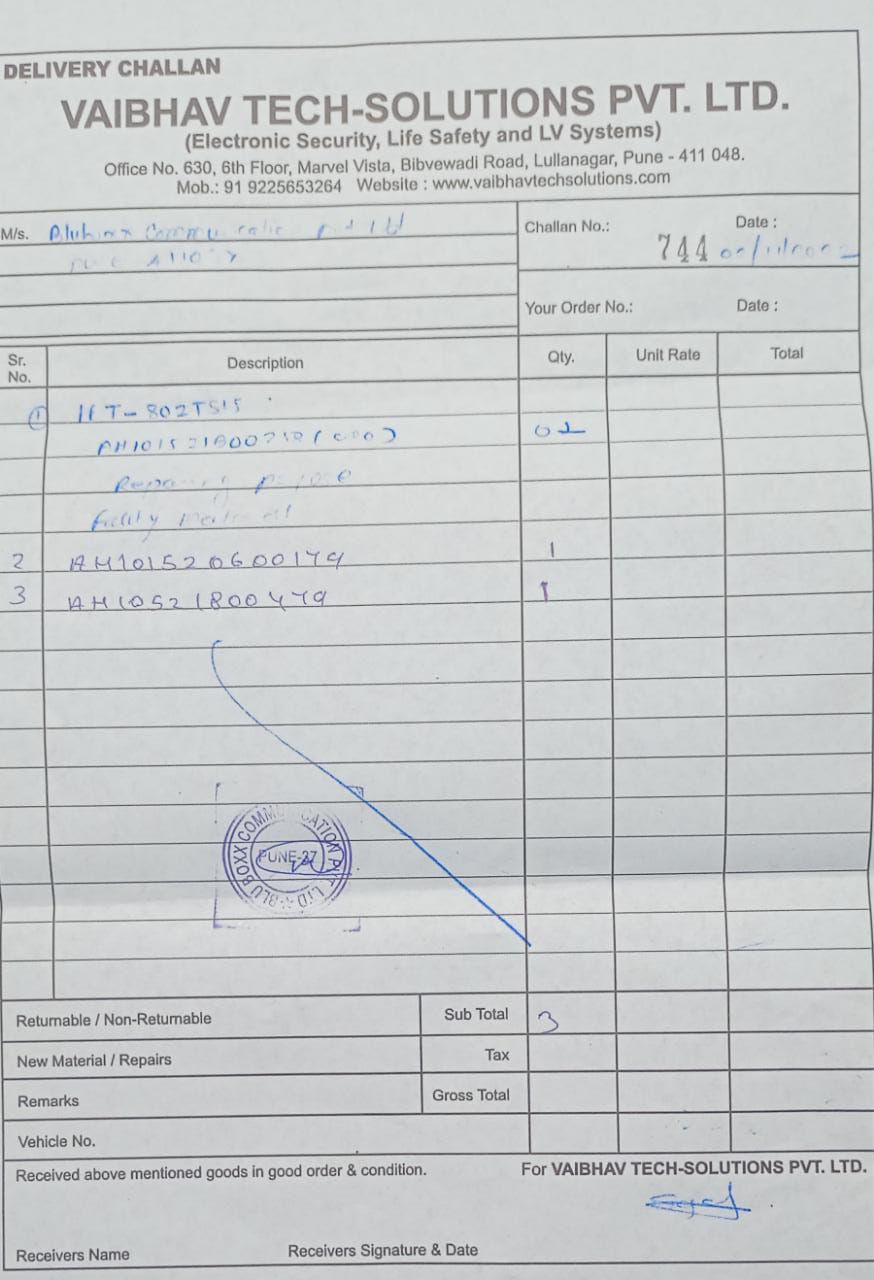 DELIVERY CHALLAN
VAIBHAV TECH-SOLUTIONS PVT. LTD.
(Electronic Security, Life Safety and LV Systems)
Office No. 630, 6th Floor, Marvel Vista, Bibvewadi Road, Lullanagar, Pune - 411 048.
Mob.: 91 9225653264 Website : www.vaibhavtechsolutions.com
M/s.
Challan No.: Date :
744
Your Order No.: Date :
Sr. No. Description Qty. Unit Rate Total
1
2 AH101520600179 1
3 AH10521800479 1
BLU BOXX COMMUNICATION PVT. LTD.
PUNE-37
Returnable / Non-Returnable Sub Total 3
New Material / Repairs Tax
Remarks Gross Total
Vehicle No.
Received above mentioned goods in good order & condition. For VAIBHAV TECH-SOLUTIONS PVT. LTD.
Receivers Name Receivers Signature & Date